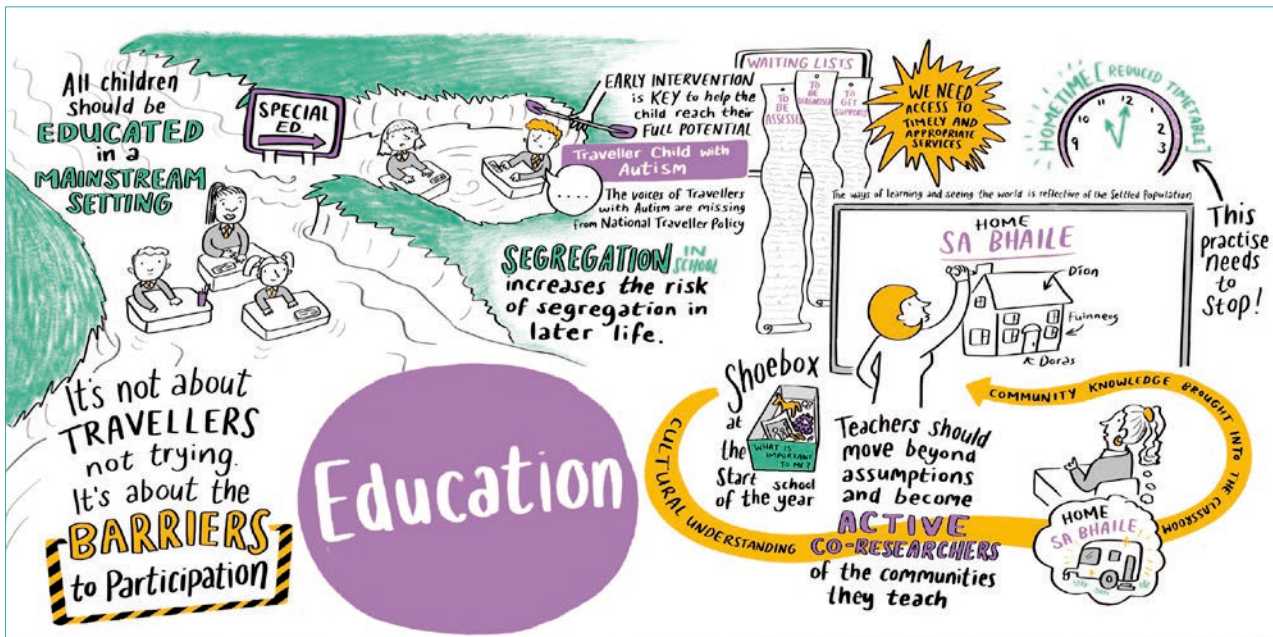 All children
should be
EDUCATED
in a
MAINSTREAM
SETTING
SPECIAL
ED.
EARLY INTERVENTION
is KEY to help the
child reach their
FULL POTENTIAL
Traveller Child with
Autism
....
The voices of Travellers
with Autism are missing
from National Traveller Policy
SEGREGATION IN
SCHOOL
increases the risk
of segregation in
later life.
WAITING LISTS
TO
BE
ASSESSED
TO
BE
DIAGNOSED
TO
GET
SUPPORTS
WE NEED
ACCESS TO
TIMELY AND
APPROPRIATE
SERVICES
HOMETIME [REDUCED TIMETABLE]
9 10 11 12 1 2 3
This
practise
needs
to
Stop!
The ways of learning and seeing the world is reflective of the Settled Population
HOME
SA BHAILE
Díon
Fuinneog
Doras
It's not about
TRAVELLERS
not trying.
It's about the
BARRIERS
to Participation
Education
Shoebox
at
the
Start school
of the year
WHAT IS
IMPORTANT
TO ME?
CULTURAL UNDERSTANDING
Teachers should
move beyond
assumptions
and become
ACTIVE
CO-RESEARCHERS
of the communities
they teach
COMMUNITY KNOWLEDGE BROUGHT INTO THE CLASSROOM
HOME
SA BHAILE